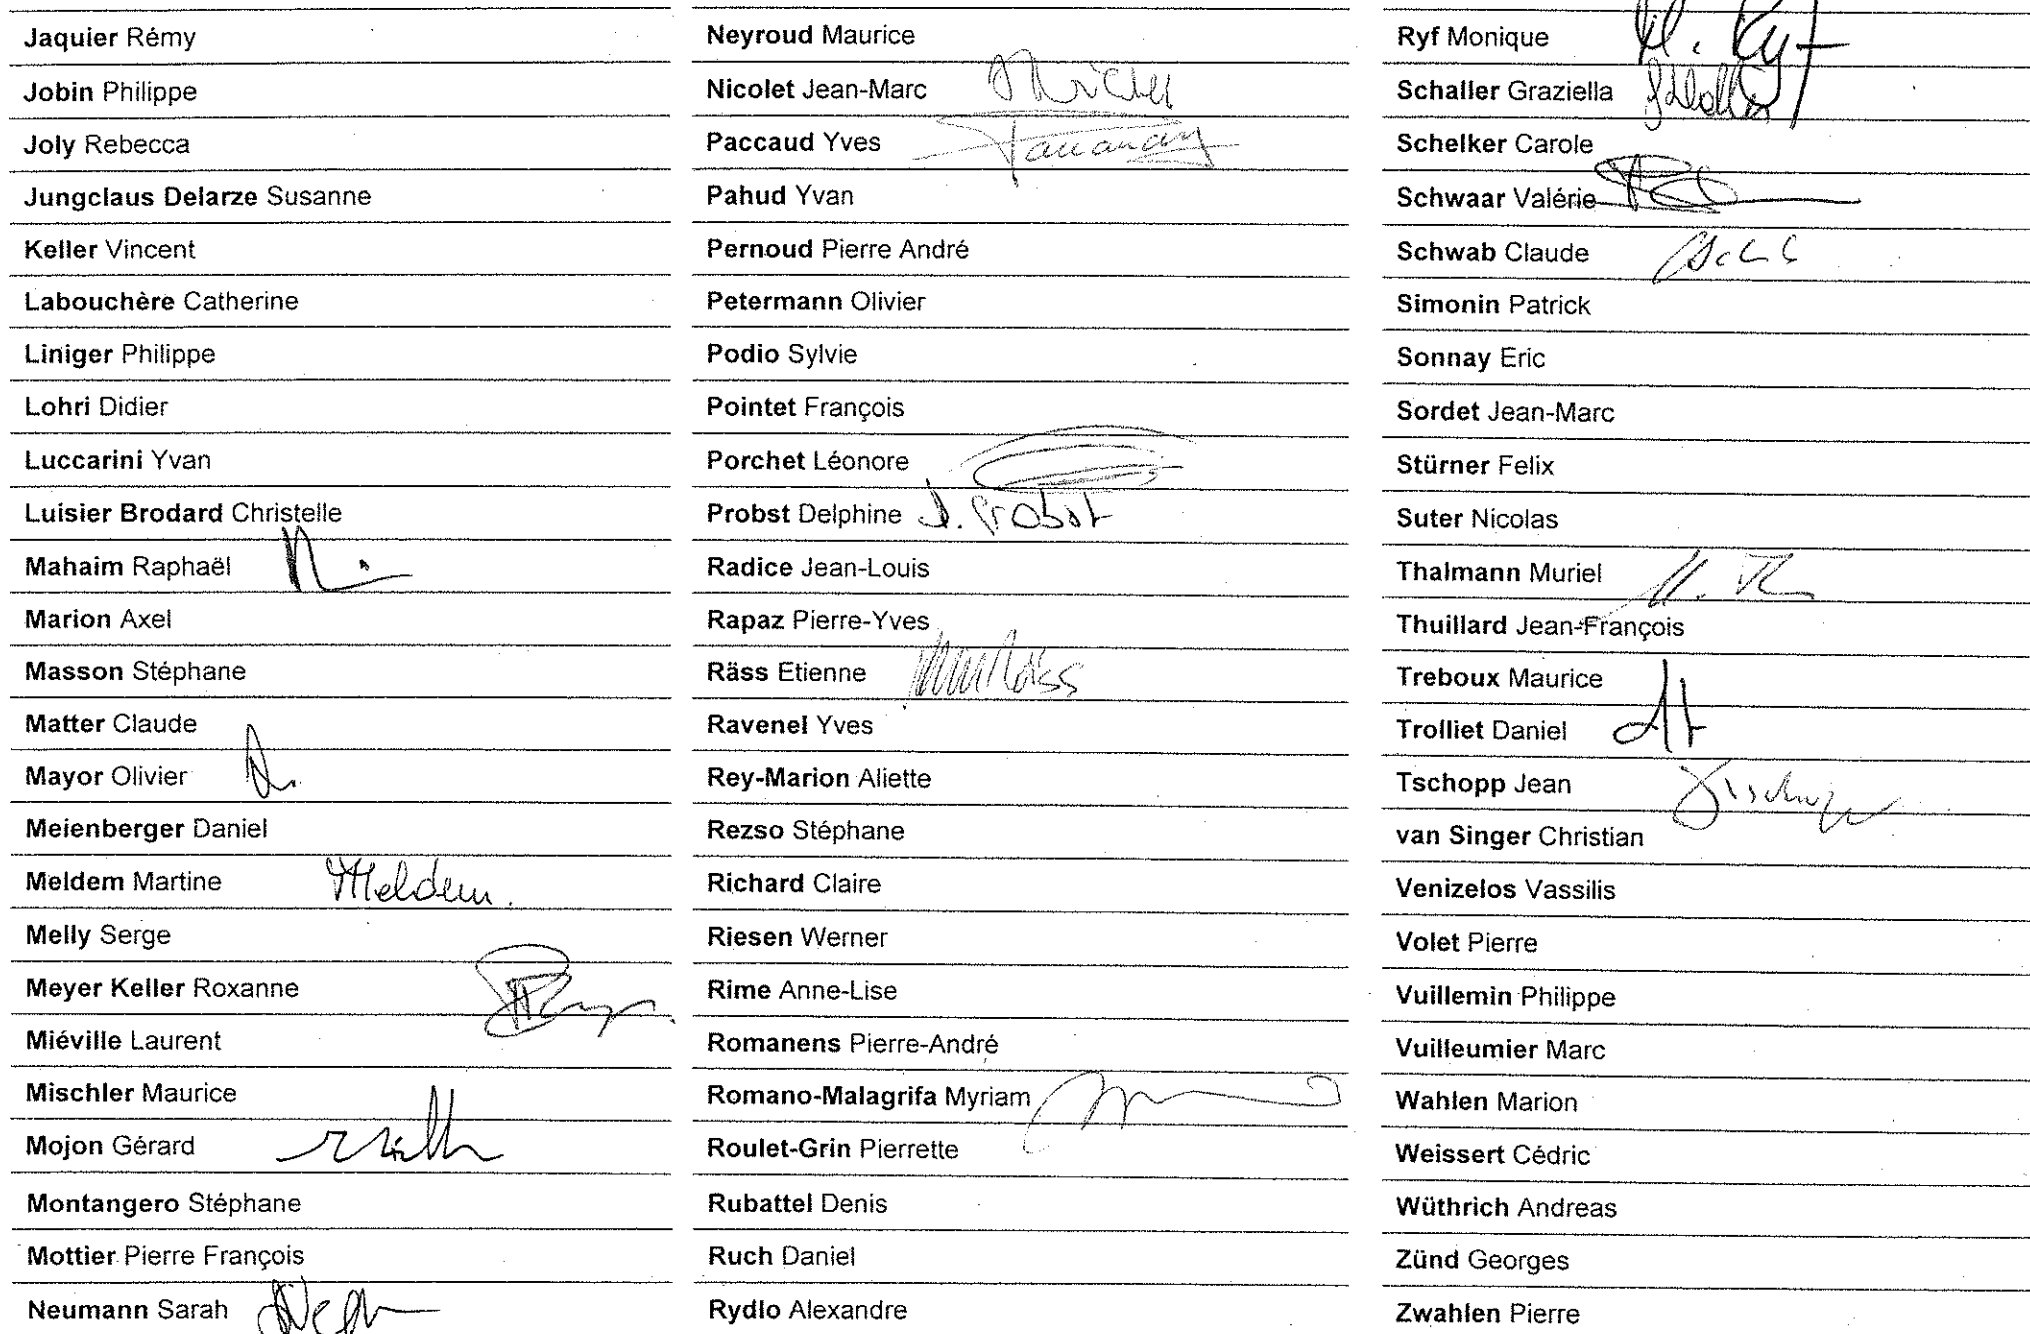 Jaquier Rémy
Jobin Philippe
Joly Rebecca
Jungclaus Delarze Susanne
Keller Vincent
Labouchère Catherine
Liniger Philippe
Lohri Didier
Luccarini Yvan
Luisier Brodard Christelle
Mahaim Raphaël
Marion Axel
Masson Stéphane
Matter Claude
Mayor Olivier
Meienberger Daniel
Meldem Martine Meldem.
Melly Serge
Meyer Keller Roxanne
Miéville Laurent
Mischler Maurice
Mojon Gérard
Montangero Stéphane
Mottier Pierre François
Neumann Sarah
Neyroud Maurice
Nicolet Jean-Marc
Paccaud Yves
Pahud Yvan
Pernoud Pierre André
Petermann Olivier
Podio Sylvie
Pointet François
Porchet Léonore
Probst Delphine D. Probst
Radice Jean-Louis
Rapaz Pierre-Yves
Räss Etienne
Ravenel Yves
Rey-Marion Aliette
Rezso Stéphane
Richard Claire
Riesen Werner
Rime Anne-Lise
Romanens Pierre-André
Romano-Malagrifa Myriam
Roulet-Grin Pierrette
Rubattel Denis
Ruch Daniel
Rydlo Alexandre
Ryf Monique M. Ryf
Schaller Graziella
Schelker Carole
Schwaar Valérie
Schwab Claude
Simonin Patrick
Sonnay Eric
Sordet Jean-Marc
Stürner Felix
Suter Nicolas
Thalmann Muriel
Thuillard Jean-François
Treboux Maurice
Trolliet Daniel
Tschopp Jean
van Singer Christian
Venizelos Vassilis
Volet Pierre
Vuillemin Philippe
Vuilleumier Marc
Wahlen Marion
Weissert Cédric
Wüthrich Andreas
Zünd Georges
Zwahlen Pierre